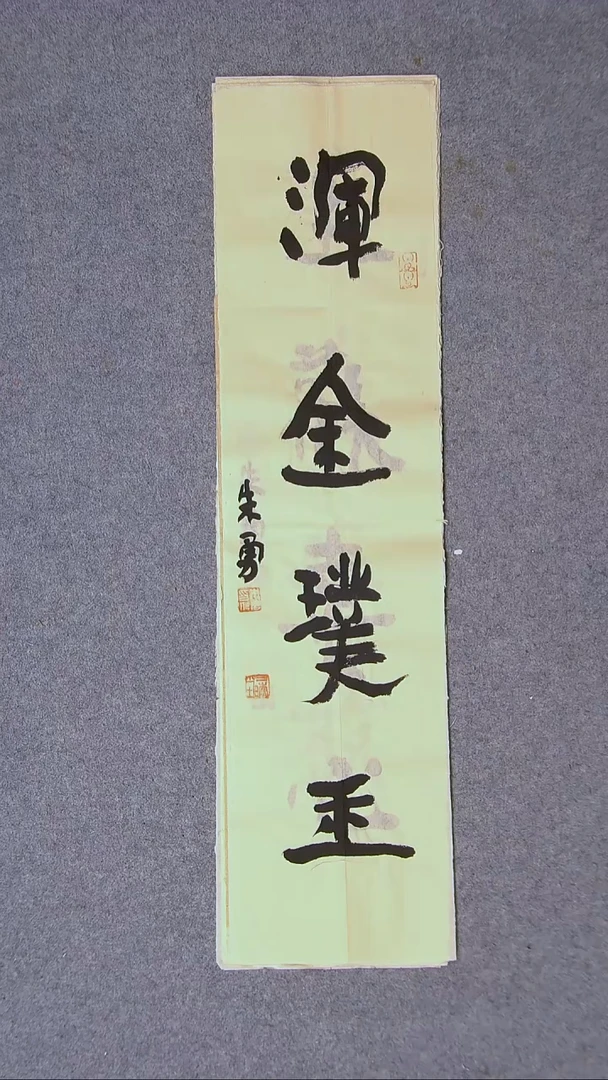 渾金璞玉
朱勇